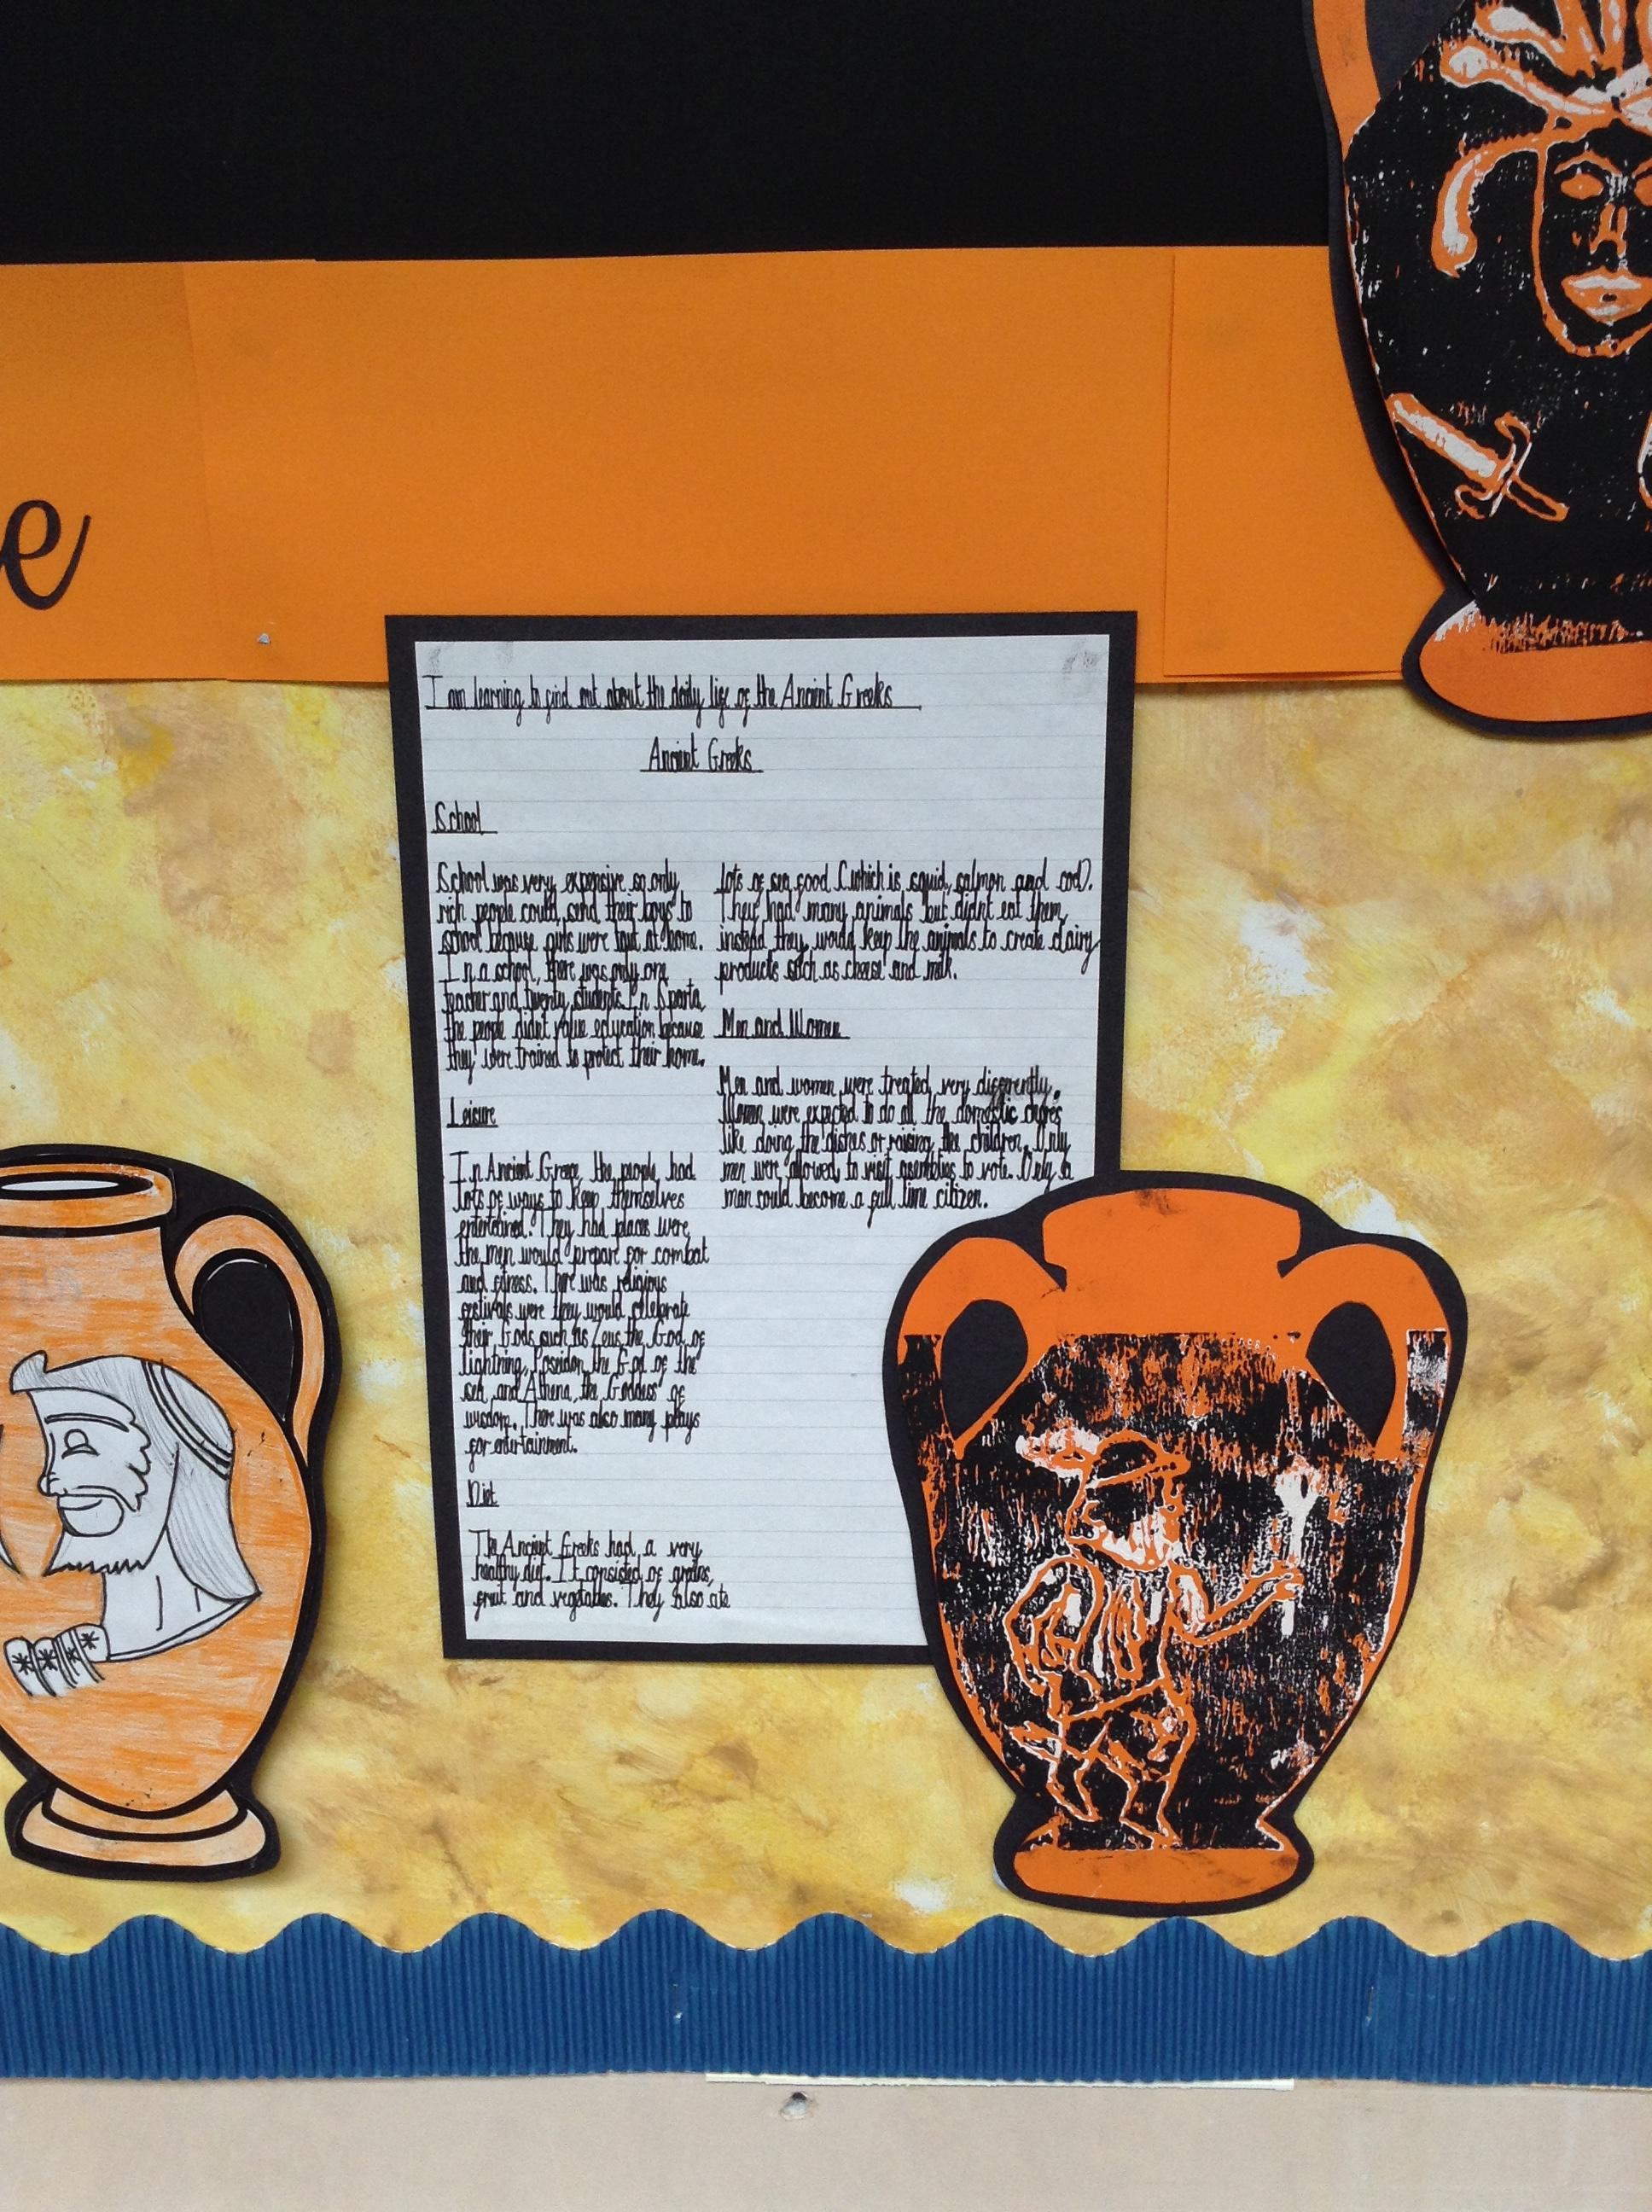 e
I am learning to find out about the daily life of the Ancient Greeks
Ancient Greeks
School
School was very expensive so only
rich people could send their boys to
school because girls were taut at home.
In a school, there was only one
teacher and twenty students. In Sparta,
the people didnt value education because
they were trained to protect their home.
Leisure
In Ancient Greece, the people had
lots of ways to keep themselves
entertained. They had places were
the men would prepare for combat
and fitness. There was religious
festivals were they would celebrate
their Gods such as Zeus the God of
lightning, Poseidon the God of the
sea, and Athena, the Goddess of
wisdom. There was also many plays
for entertainment.
Diet
The Ancient Greeks had a very
healthy diet. It consisted of grains,
fruit and vegetables. They also ate
lots of sea food (which is squid, salmon and cod).
They had many animals but didnt eat them,
instead they would keep the animals to create dairy
products such as cheese and milk.
Men and Women
Men and women were treated very differently.
Women were expected to do all the domestic chores
like doing the dishes or raising the children. Only
men were allowed to visit assemblies to vote. Only a
man could become a full time citizen.